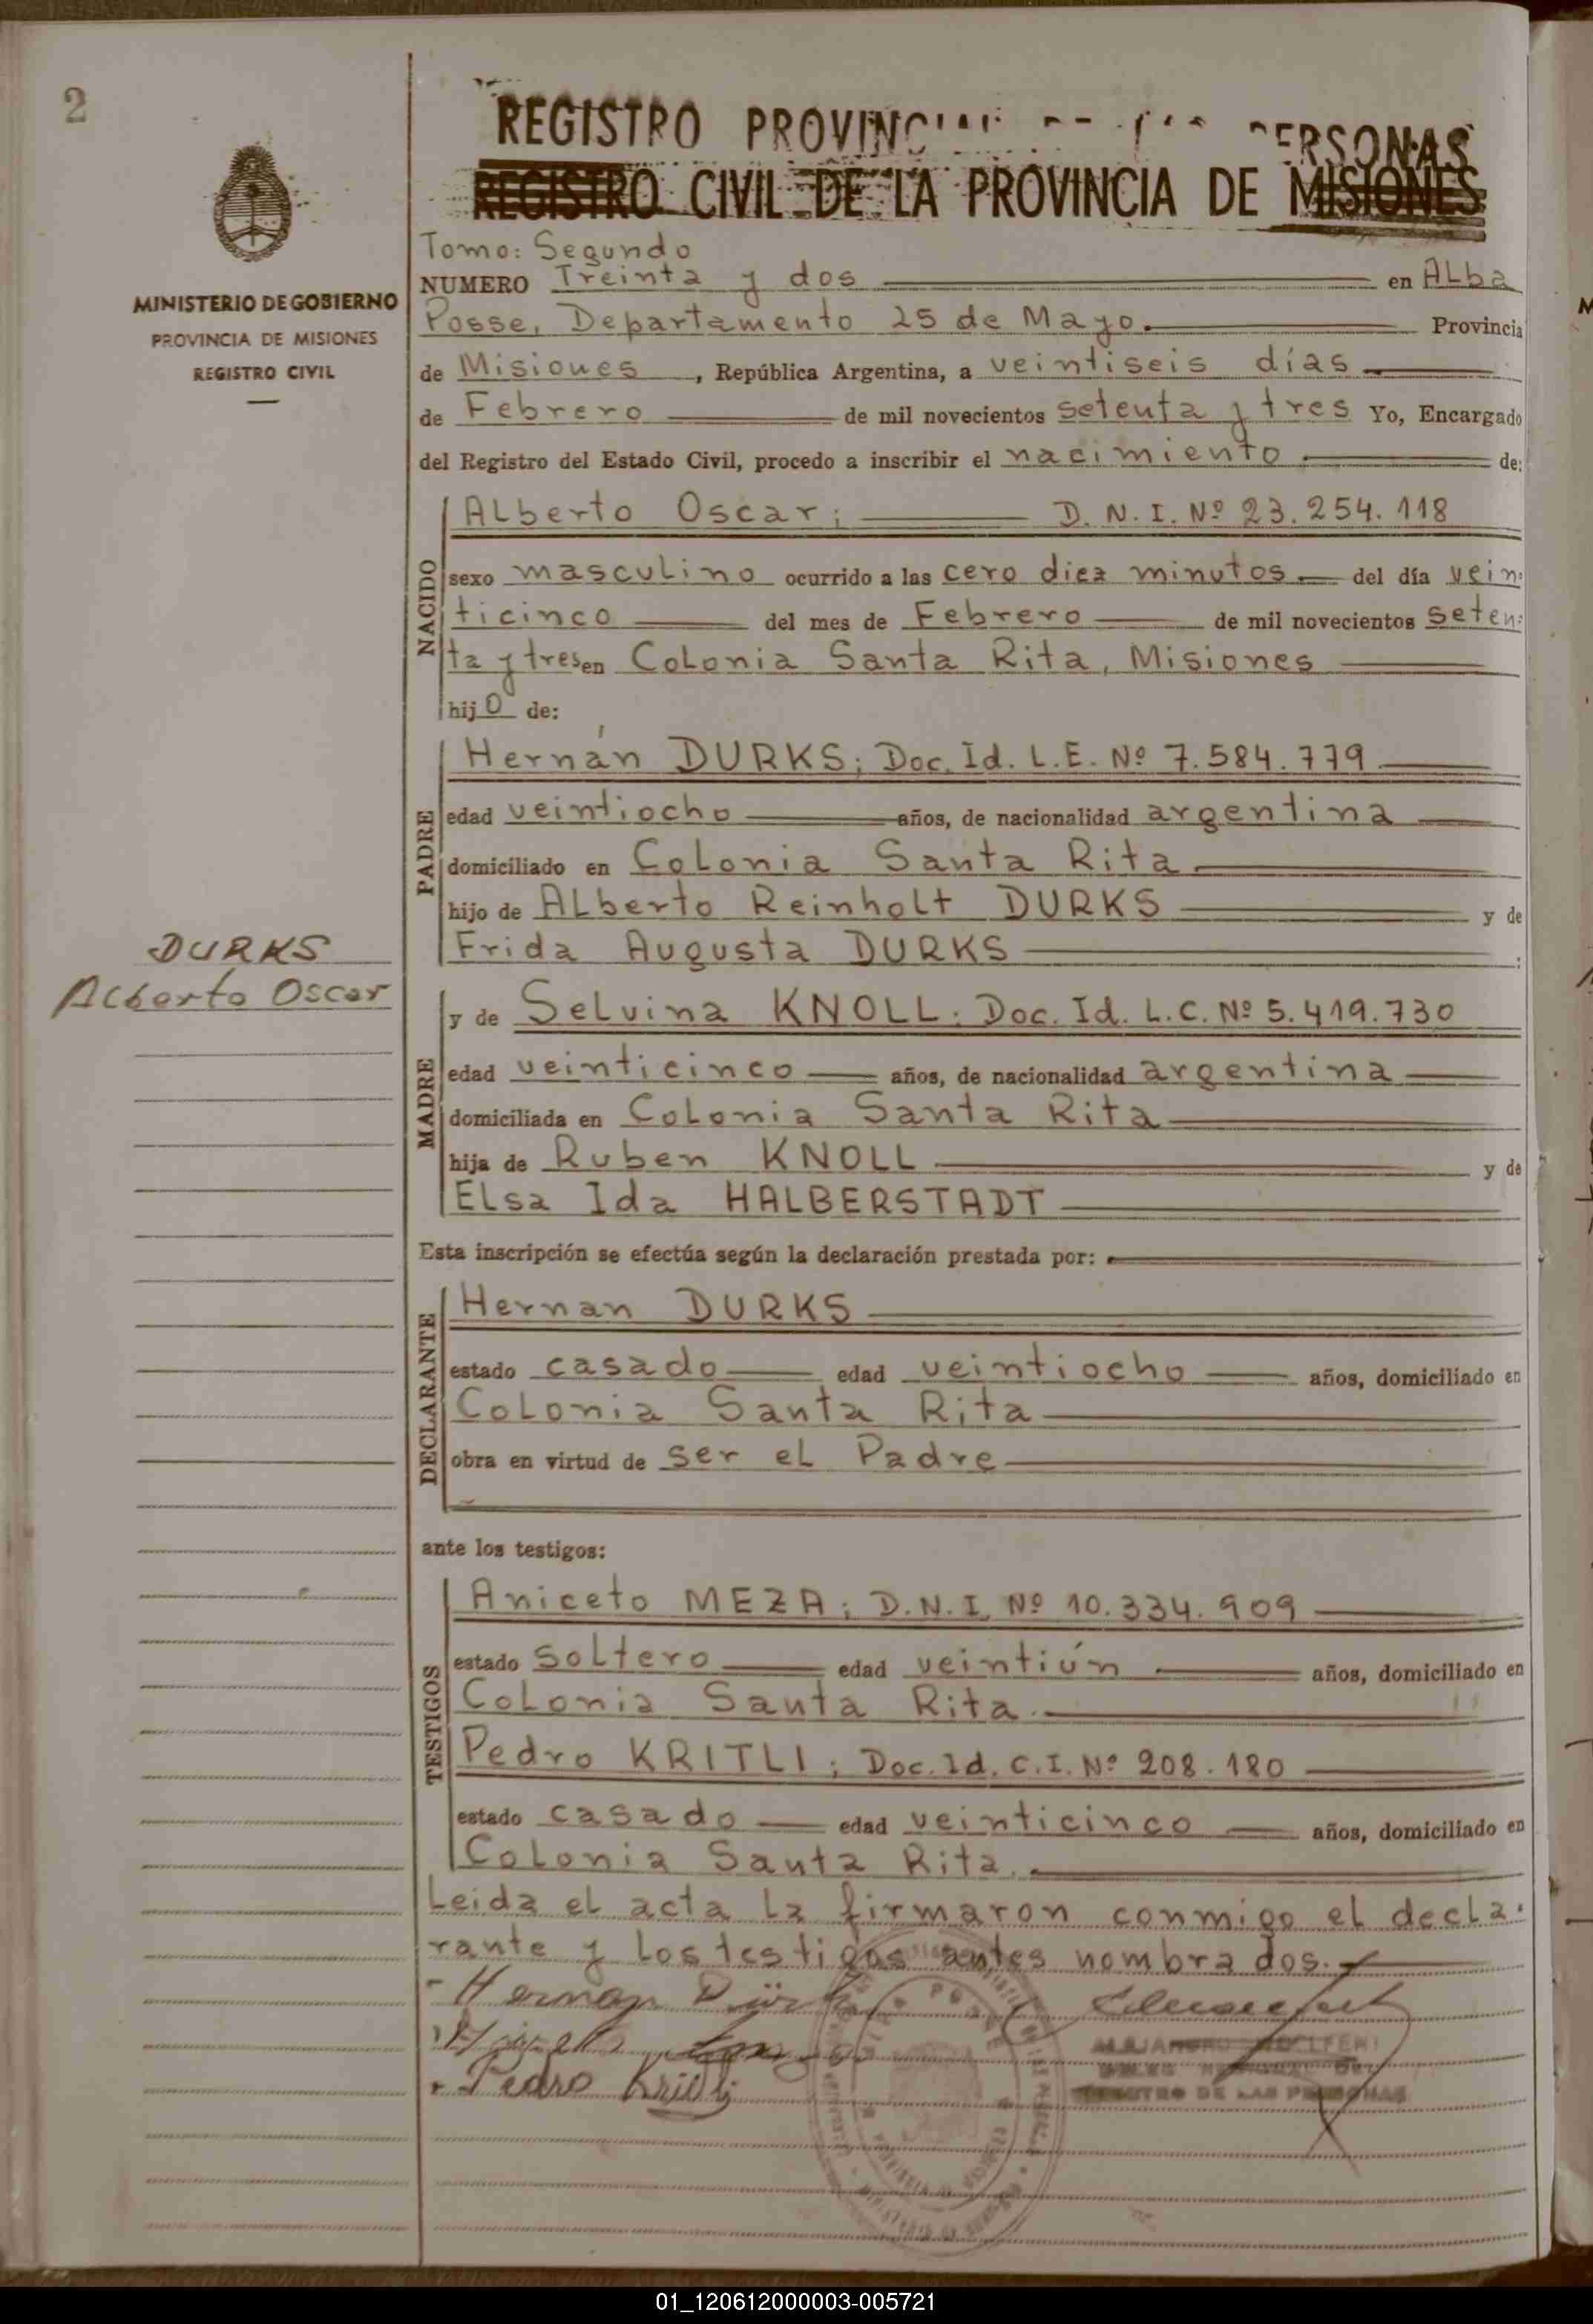 2
MINISTERIO DE GOBIERNO
PROVINCIA DE MISIONES
REGISTRO CIVIL
DURKS
Alberto Oscar
REGISTRO PROVINCIAL PERSONAS
REGISTRO CIVIL DE LA PROVINCIA DE MISIONES
Tomo: Segundo
NUMERO Treinta y dos en Alba
Posse, Departamento 25 de Mayo. Provincia
de Misiones, República Argentina, a veintiseis días
de Febrero de mil novecientos setenta y tres Yo, Encargado
del Registro del Estado Civil, procedo a inscribir el nacimiento de:
NACIDO
Alberto Oscar; D. N. I. Nº 23.254.118
sexo masculino ocurrido a las cero diez minutos del día vein-
ticinco del mes de Febrero de mil novecientos seten-
ta y tres en Colonia Santa Rita, Misiones
hijo de:
PADRE
Hernán DURKS; Doc. Id. L.E. Nº 7.584.779
edad veintiocho años, de nacionalidad argentina
domiciliado en Colonia Santa Rita
hijo de Alberto Reinholt DURKS y de
Frida Augusta DURKS ;
MADRE
y de Selvina KNOLL. Doc. Id. L.C. Nº 5.419.730
edad veinticinco años, de nacionalidad argentina
domiciliada en Colonia Santa Rita
hija de Ruben KNOLL y de
Elsa Ida HALBERSTADT
Esta inscripción se efectúa según la declaración prestada por:
DECLARANTE
Hernan DURKS
estado casado edad veintiocho años, domiciliado en
Colonia Santa Rita
obra en virtud de ser el Padre
ante los testigos:
TESTIGOS
Aniceto MEZA; D.N.I. Nº 10.334.909
estado soltero edad veintiún años, domiciliado en
Colonia Santa Rita.
Pedro KRITLI; Doc. Id. C.I. Nº 208.180
estado casado edad veinticinco años, domiciliado en
Colonia Santa Rita.
Leida el acta la firmaron conmigo el decla-
rante y los testigos antes nombrados.
Hernan Dürks
Pedro
REGISTRO DE LAS PERSONAS
01_120612000003-005721